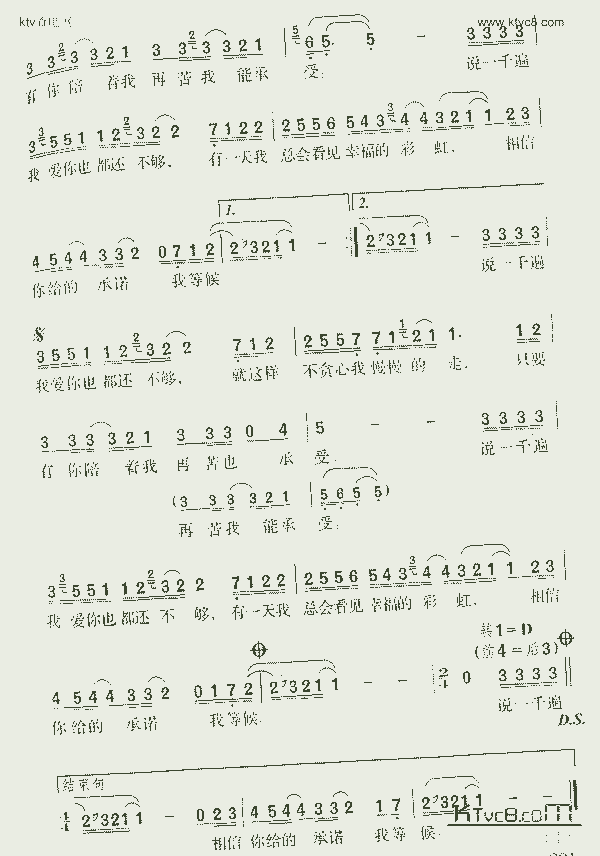 www.ktvc8.com
3 3 3 3 3 2 1 3 3 3 3 3 2 1 6 5. 5 - 3 3 3 3
有你陪 着我 再苦我 能承 受; 说一千遍
3 5 5 1 1 2 3 2 2 7 1 2 2 2 5 5 6 5 4 3 4 4 3 2 1 1 2 3
我爱你也都还不够, 有一天我 总会看见幸福的彩 虹, 相信
1. 2.
4 5 4 4 3 3 2 0 7 1 2 2 3 2 1 1 - 2 3 2 1 1 - 3 3 3 3
你给的 承诺 我等候 说一千遍
3 5 5 1 1 2 3 2 2 7 1 2 2 5 5 7 7 1 2 1 1. 1 2
我爱你也都还不够, 就这样 不贪心我慢慢的 走, 只要
3 3 3 3 2 1 3 3 3 0 4 5 - - 3 3 3 3
有你陪 着我 再苦也 承 受; 说一千遍
(3 3 3 3 2 1 5 6 5 5)
再苦我 能承 受;
3 5 5 1 1 2 3 2 2 7 1 2 2 2 5 5 6 5 4 3 4 4 3 2 1 1 2 3
我爱你也都还不够, 有一天我 总会看见幸福的彩 虹, 相信
转1=D
(前4=后3)
4 5 4 4 3 3 2 0 1 7 2 2 3 2 1 1 - - 2/4 0 3 3 3 3
你给的 承诺 我等候, 说一千遍
D.S.
结束句
2 3 2 1 1 - 0 2 3 4 5 4 4 3 3 2 1 7 2 3 2 1 1 - -
相信 你给的 承诺 我等 候
KTvc8.com